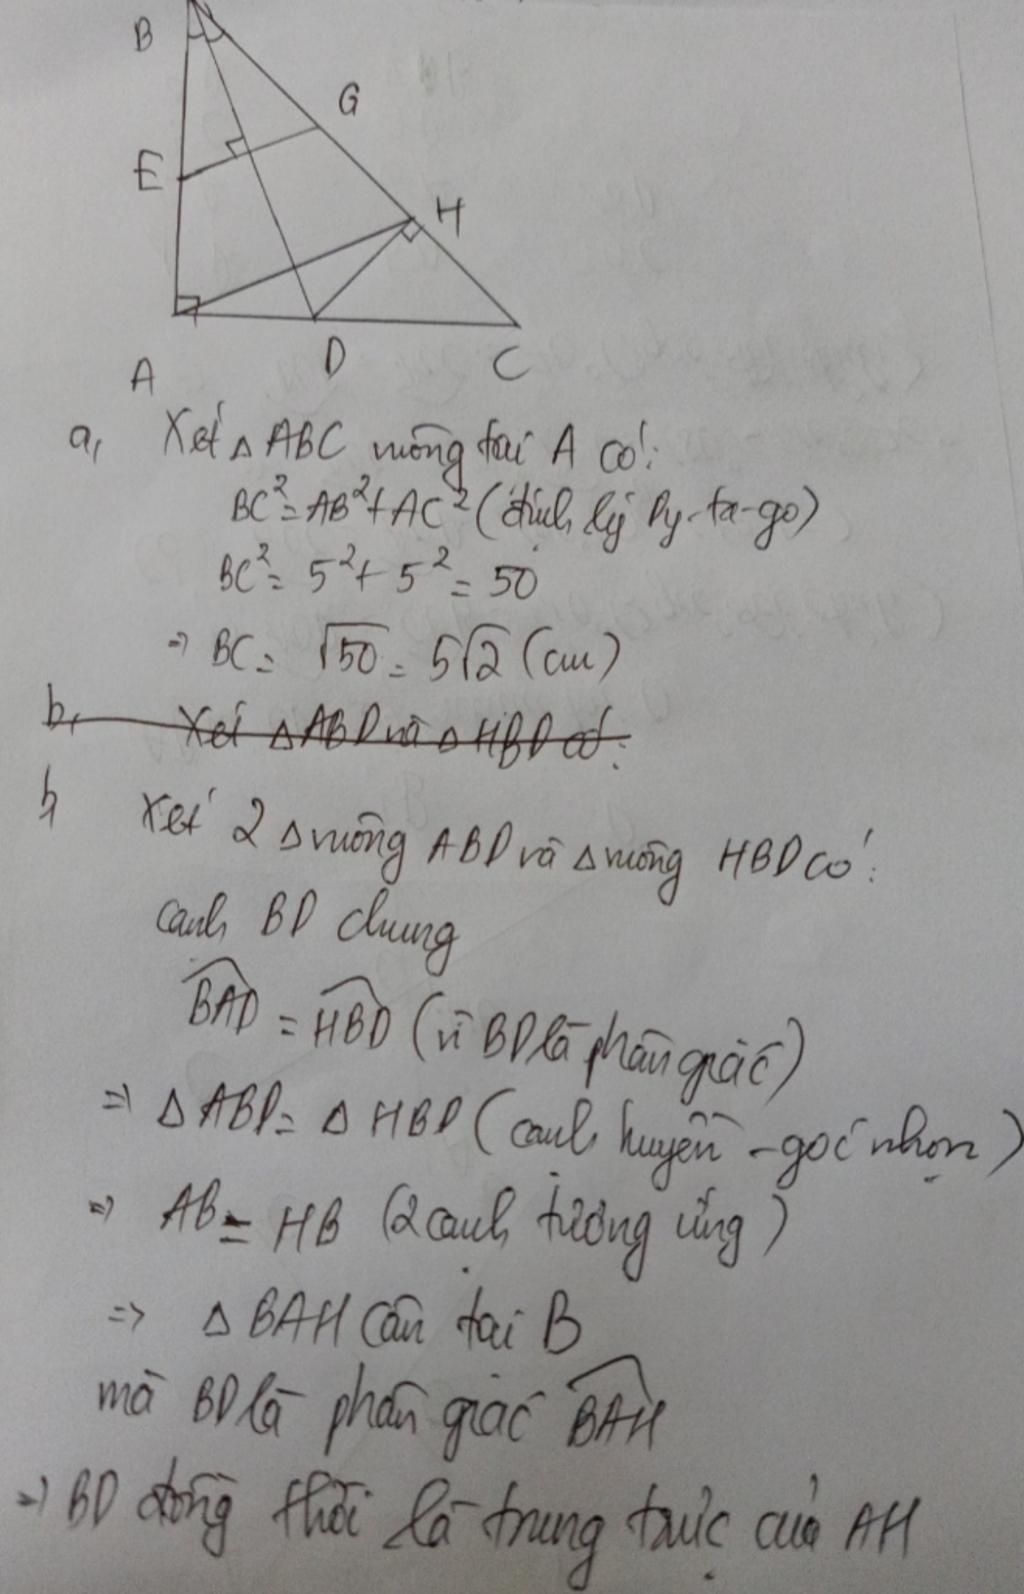 B
G
E
H
A
D
C
a, Xét △ABC vuông tại A có:
BC² = AB² + AC² (định lý Py-ta-go)
BC² = 5² + 5² = 50
⇒ BC = √50 = 5√2 (cm)
b, Xét △ABD và △HBD có:
b, Xét 2 △vuông ABD và △vuông HBD có:
cạnh BD chung
\widehat{BAD} = \widehat{HBD} (vì BD là phân giác)
⇒ △ABD = △HBD (cạnh huyền - góc nhọn)
⇒ AB = HB (2 cạnh tương ứng)
⇒ △BAH cân tại B
mà BD là phân giác \widehat{BAH}
⇒ BD đồng thời là trung trực của AH